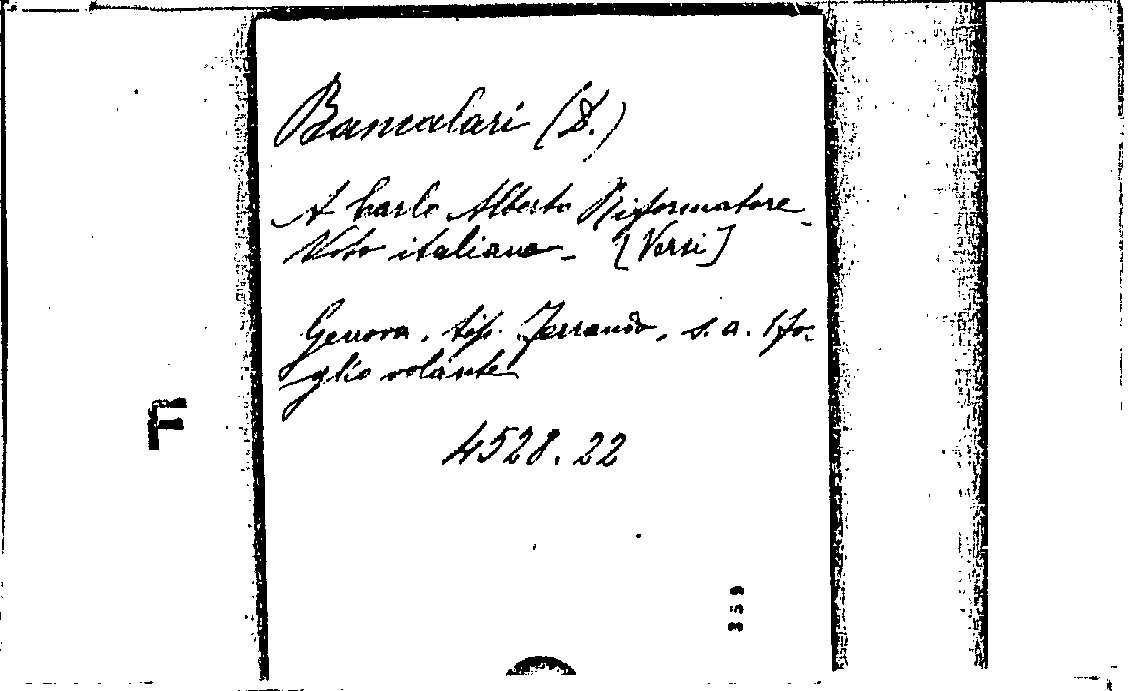 Bancalari (D.)
A Carlo Alberto Riformatore -
Voto italiano - [Versi]
Genova, tip. Ferrando, s. a. 1 fo-
glio volante
4528.22
F
359